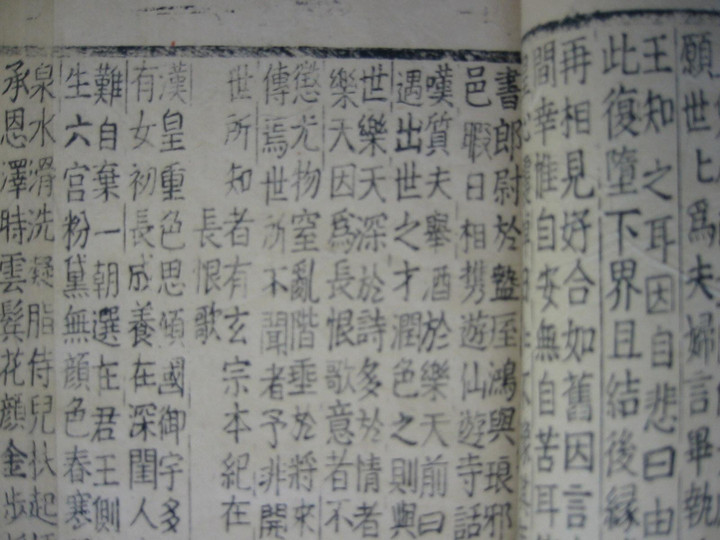 願世上爲夫婦言畢執
王知之耳因自悲曰由
此復墮下界且結後縁
再相見好合如舊因言
間幸惟自安無自苦耳
書郎尉於盩厔鴻與琅邪
邑暇日相携遊仙遊寺話
嘆質夫舉酒於樂天前曰
遇出世之才潤色之則與
世樂天深於詩多於情者
樂天因爲長恨歌意者不
懲尤物窒亂階垂於將來
傳焉世所不聞者予非開
世所知者有玄宗本紀在
長恨歌
漢皇重色思傾國御宇多
有女初長成養在深閨人
難自棄一朝選在君王側
生六宮粉黛無顔色春寒
泉水滑洗凝脂侍兒扶起
承恩澤時雲鬂花顔金步